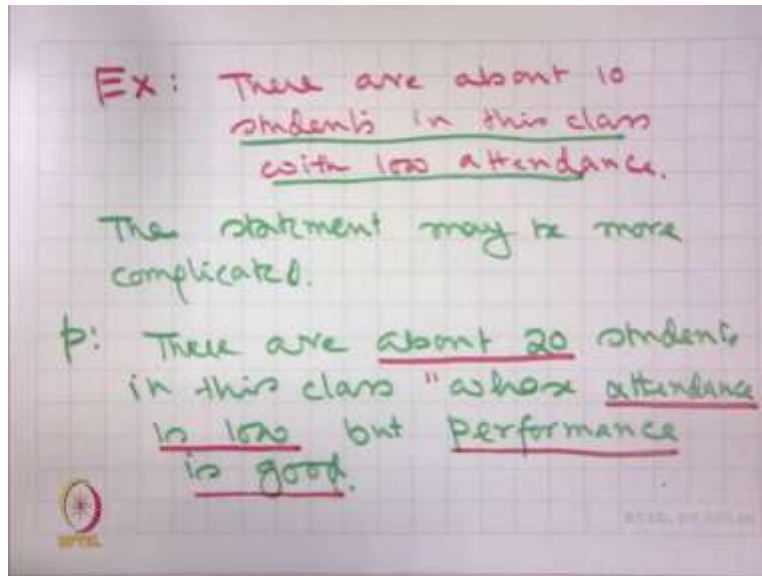 Ex: There are about 10
students in this class
with low attendance.
The statement may be more
complicated.
p: There are about 20 students
in this class "whose attendance
is low but performance
is good.
NPTEL